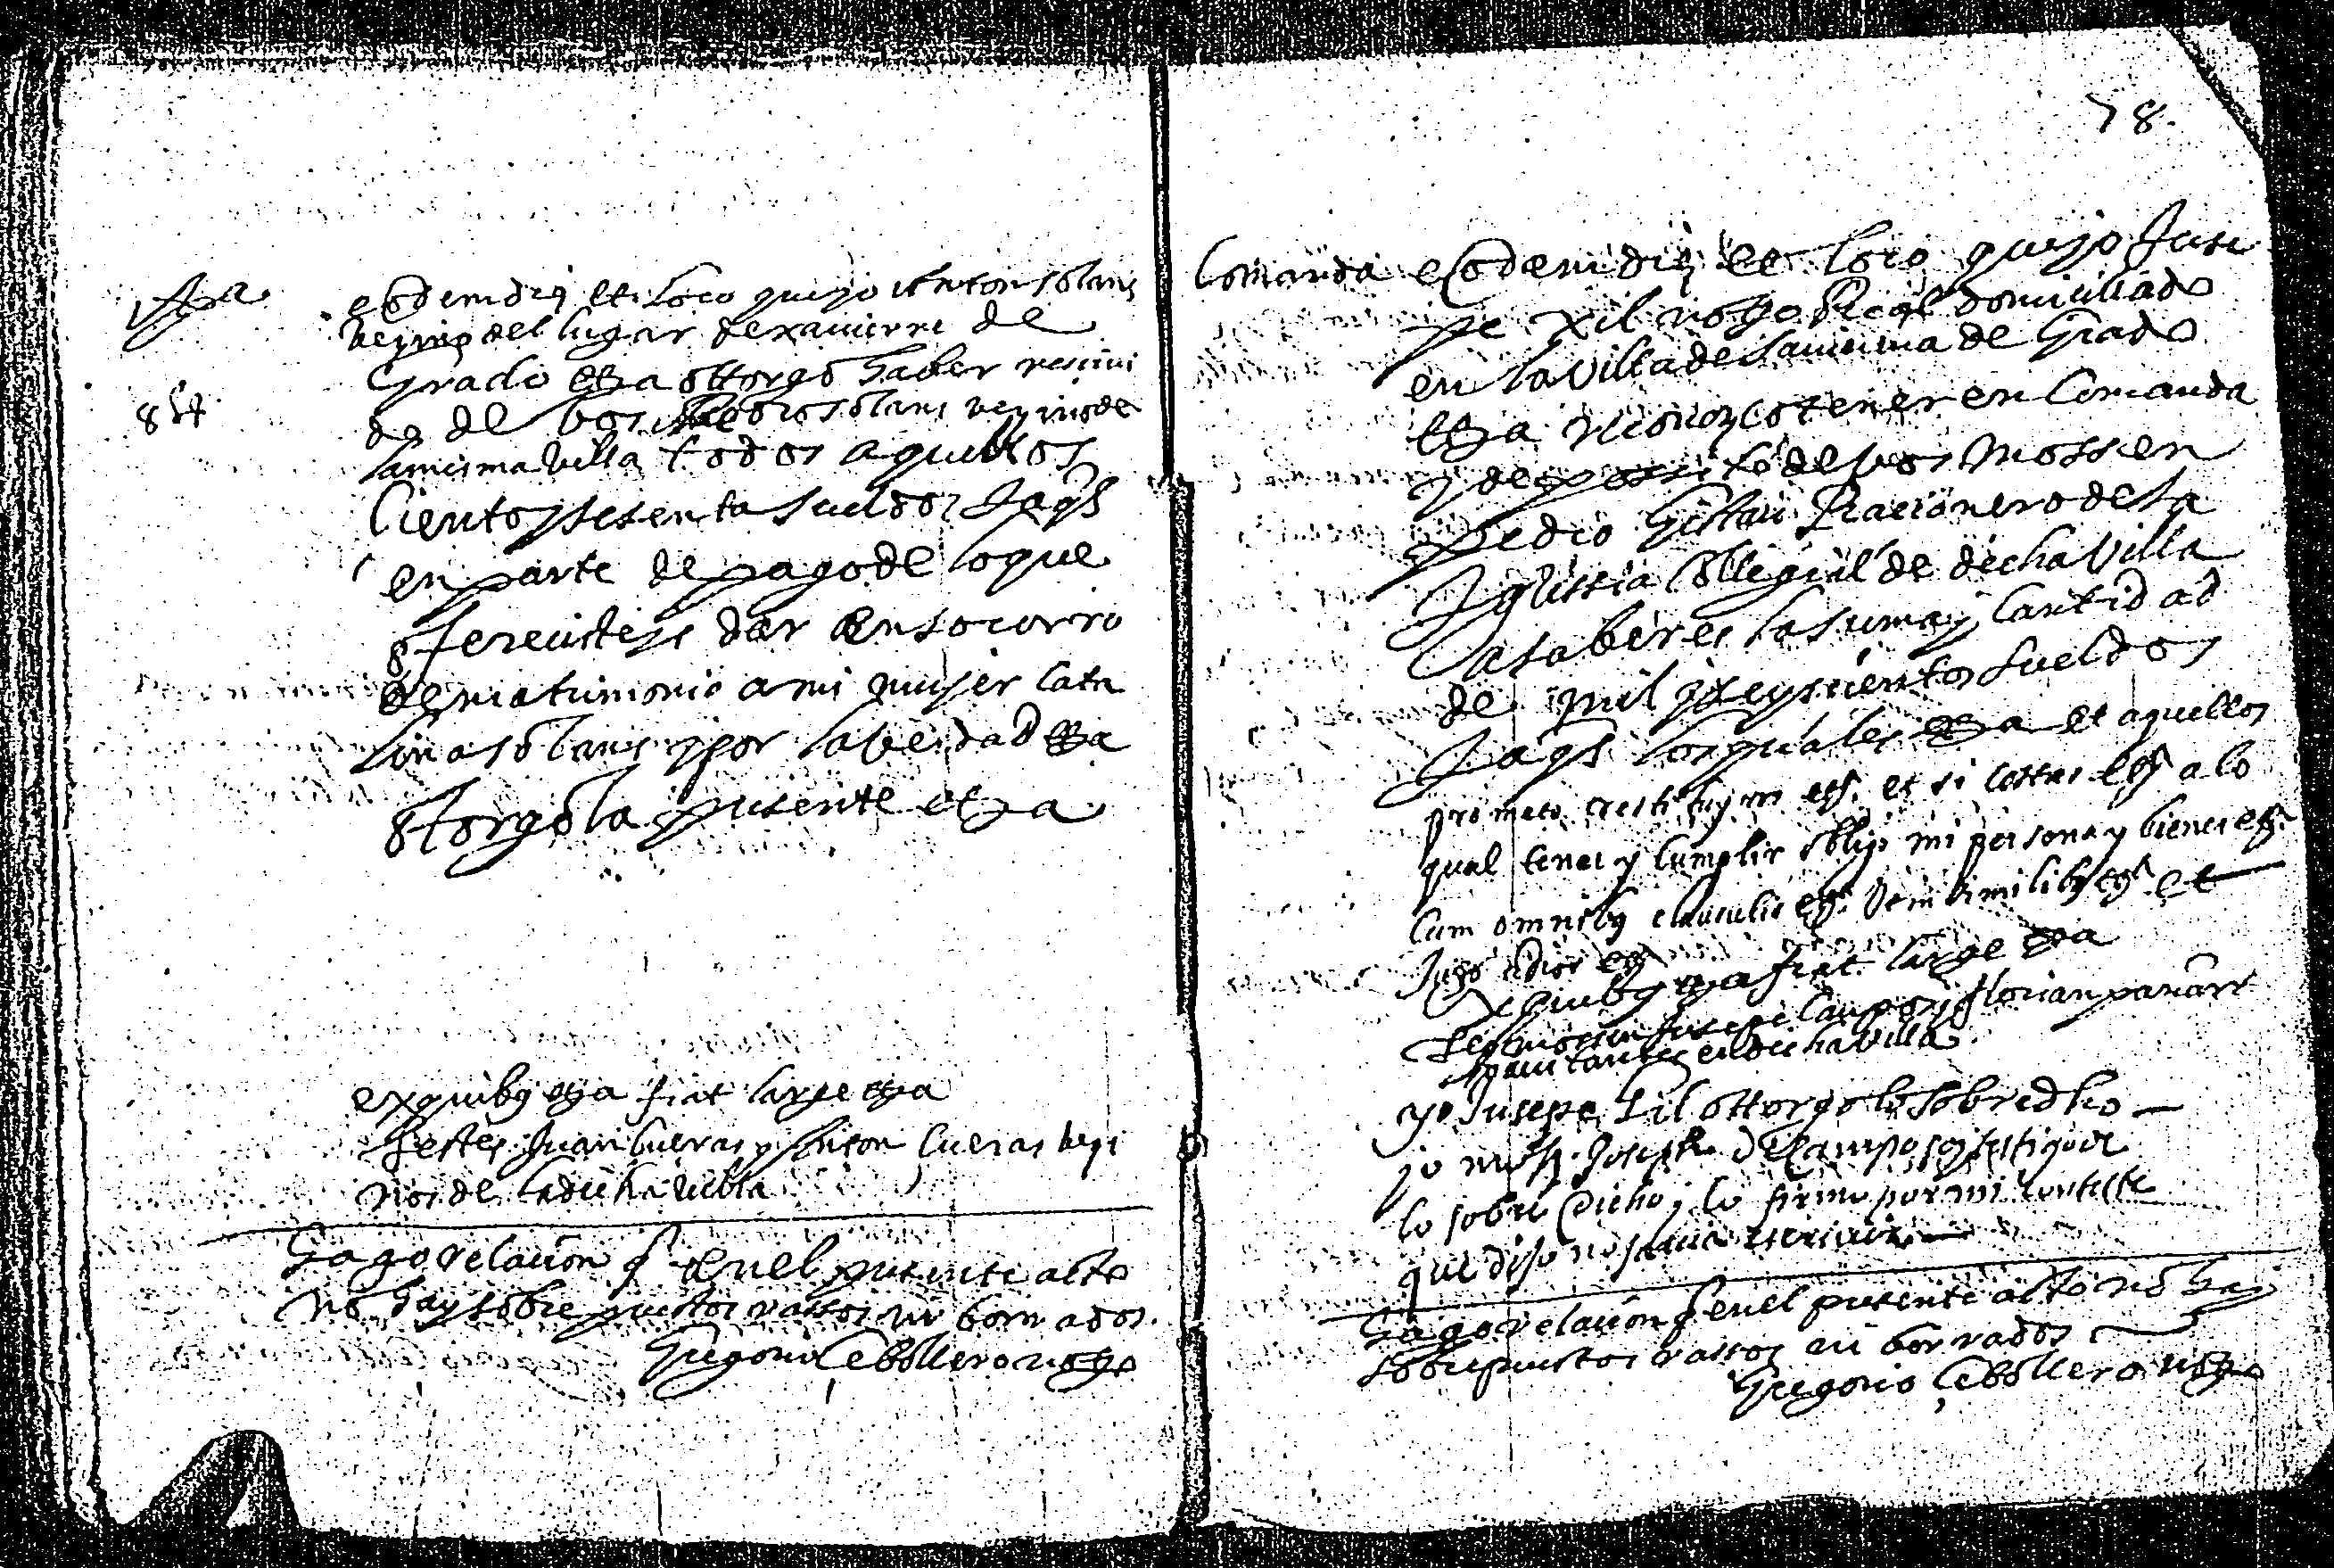 eodem die et loco que yo Anton Solans
vezino del lugar de xavierre de
Grado etza ottorgo haber recivi
do de vos Pedro Solans vezino de
la misma villa todos aquellos
Ciento y sesenta sueldos Jaqs
en parte de pago de lo que
ofrecisteys dar en socorro
de matrimonio a mi mujer Cata
lina Solans y por la verdad etza
ottorgo la presente etza
ex quibus etza fiat large etza
Testes Juan Cueras y Anton Cueras vezi
nos de la dicha villa
Hago relacion q en el presente acto
no hay sobrepuestos rassos ni borrados.
Gregorio Cebollero noto
78.
Comanda eodem die et loco que yo Juse
pe xil noto Real domiciliado
en la villa de la misma de Grado
etza reconozco tener en Comanda
y deposito de vos Mossen
Pedro Gistau Racionero de la
Iglissia Collegial de dicha villa
a saber es la suma y cantidad
de mil y seyscientos sueldos
Jaqs los quales etza et aquellos
prometo restituyros etc. et si costas etc a lo
qual tener y cumplir obligo mi persona y bienes etc.
Cum omnibus clausulis etc. in similibus etc et
Ex quibus etza fiat large etza
Tes mossen Jusepe Campos y florian
havitantes en dicha villa.
yo Jusepe Gil ottorgo lo sobredho
yo mossn. Joseph de Campo soy testigo de
lo sobre dicho y lo firmo por mi conteste
que dijo no savia escrivir
Hago relacion q en el presente acto no hay
sobrepuestos rassos ni borrados
Gregorio Cebollero noto